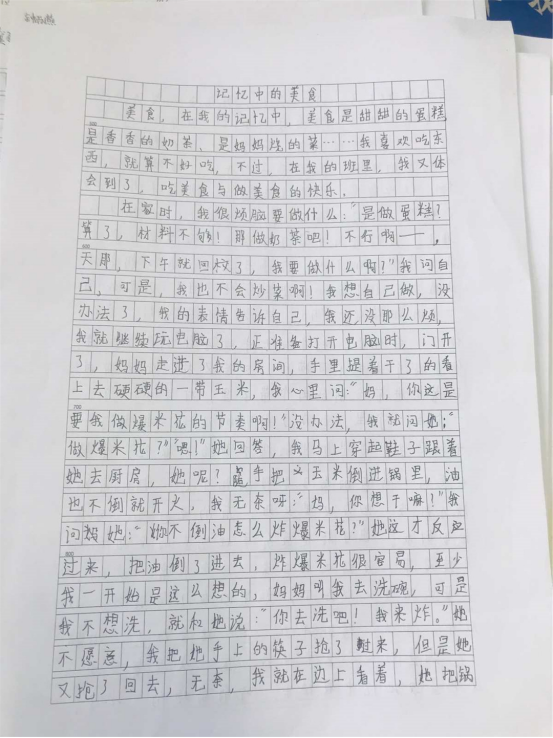 记忆中的美食
美食，在我的记忆中，美食是甜甜的蛋糕，
是香香的奶茶、是妈妈烧的菜……我喜欢吃东
西，就算不好吃，不过，在我的班里，我又体
会到了，吃美食与做美食的快乐.
在家时，我很烦脑要做什么：“是做蛋糕？
算了，材料不够！那做奶茶吧！不行啊——，
天那，下午就回校了，我要做什么啊？”我问自
己，可是，我也不会炒菜啊！我想自己做，没
办法了，我的表情告诉自己，我还没那么烦，
我就继续玩电脑了，正准备打开电脑时，门开
了，妈妈走进了我的房间，手里提着干了的看
上去硬硬的一带玉米，我心里问：“妈，你这是
要我做爆米花的节奏啊！”没办法，我就问她：“
做爆米花？”“嗯！”她回答，我马上穿起鞋子跟着
她去厨房，她呢？手把玉米倒进锅里，油
也不倒就开火，我无奈呀：“妈，你想干嘛？”我
问她：“你不倒油怎么炸爆米花？”她这才反应
过来，把油倒了进去，炸爆米花很容易，至少
我一开始是这么想的，妈妈叫我去洗碗，可是
我不想洗，就和她说：“你去洗吧！我来炸。”她
不愿意，我把她手上的筷子抢了过来，但是她
又抢了回去，无奈，我就在边上看着，她把锅